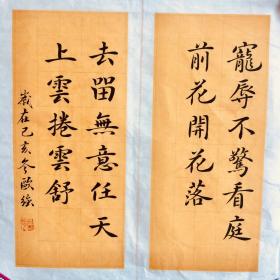 寵辱不驚看庭
前花開花落
去留無意任天
上雲捲雲舒
歲在己亥冬歐